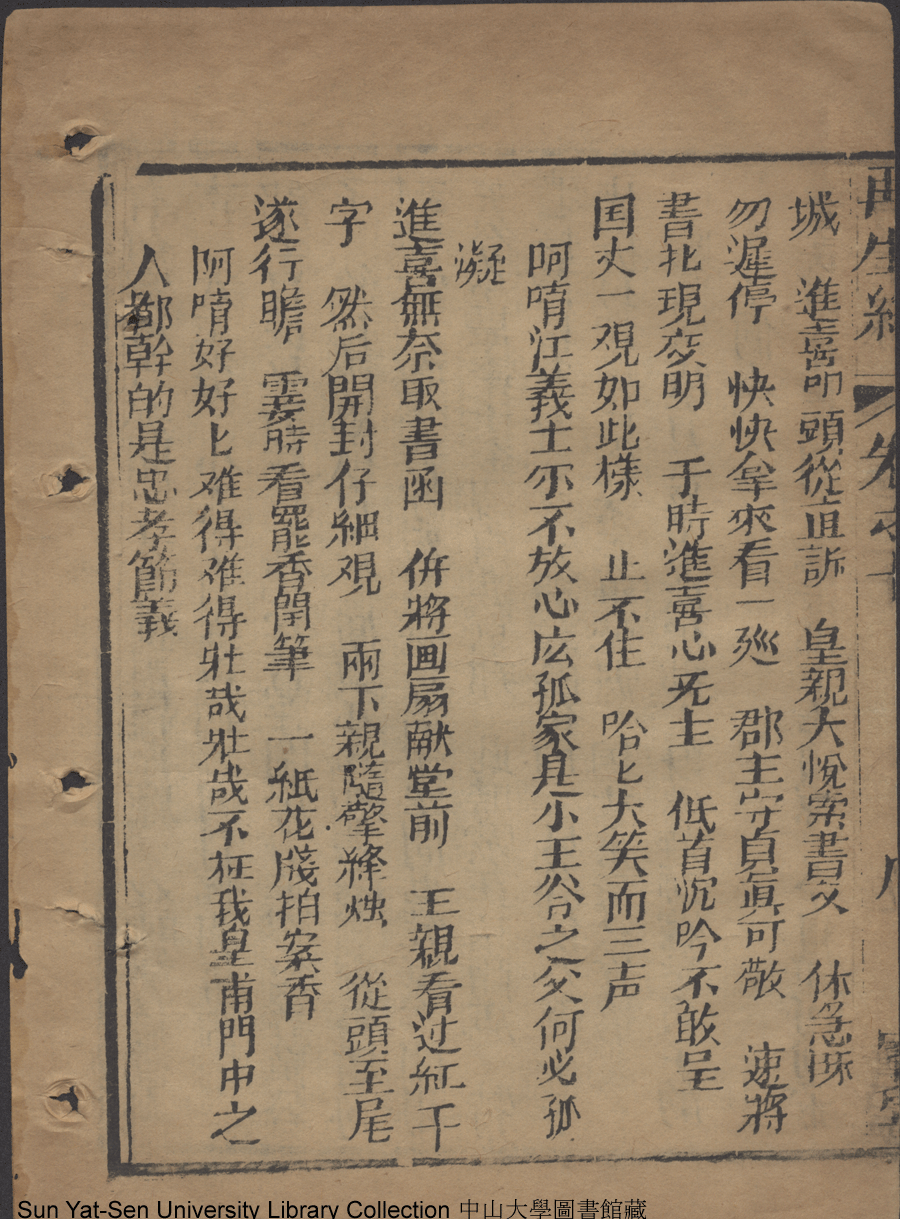 再生緣 卷之十
城　進喜叩頭從直訴　皇親大悅索書文　休急㴑
勿遲停　快快拿來看一廵　郡主守貞真可敬　速將
書札現交明　于時進喜心无主　低首沉吟不敢呈
国丈一覌如此樣　止不住　哈匕大笑而三声
呵唷江義士尓不放心庅孤家是小王爷之父何必孤
凝
進喜無奈取書函　併將画扇献堂前　王親看过紅干
字　然后開封仔細覌　兩下親隨擎絳烛　從頭至尾
遂行瞻　霎時看罷香閨筆　一紙花牋拍案香
阿唷好好匕难得难得壯哉壯哉不枉我皇甫門中之
人都幹的是忠孝節義
Sun Yat-Sen University Library Collection 中山大學圖書館藏